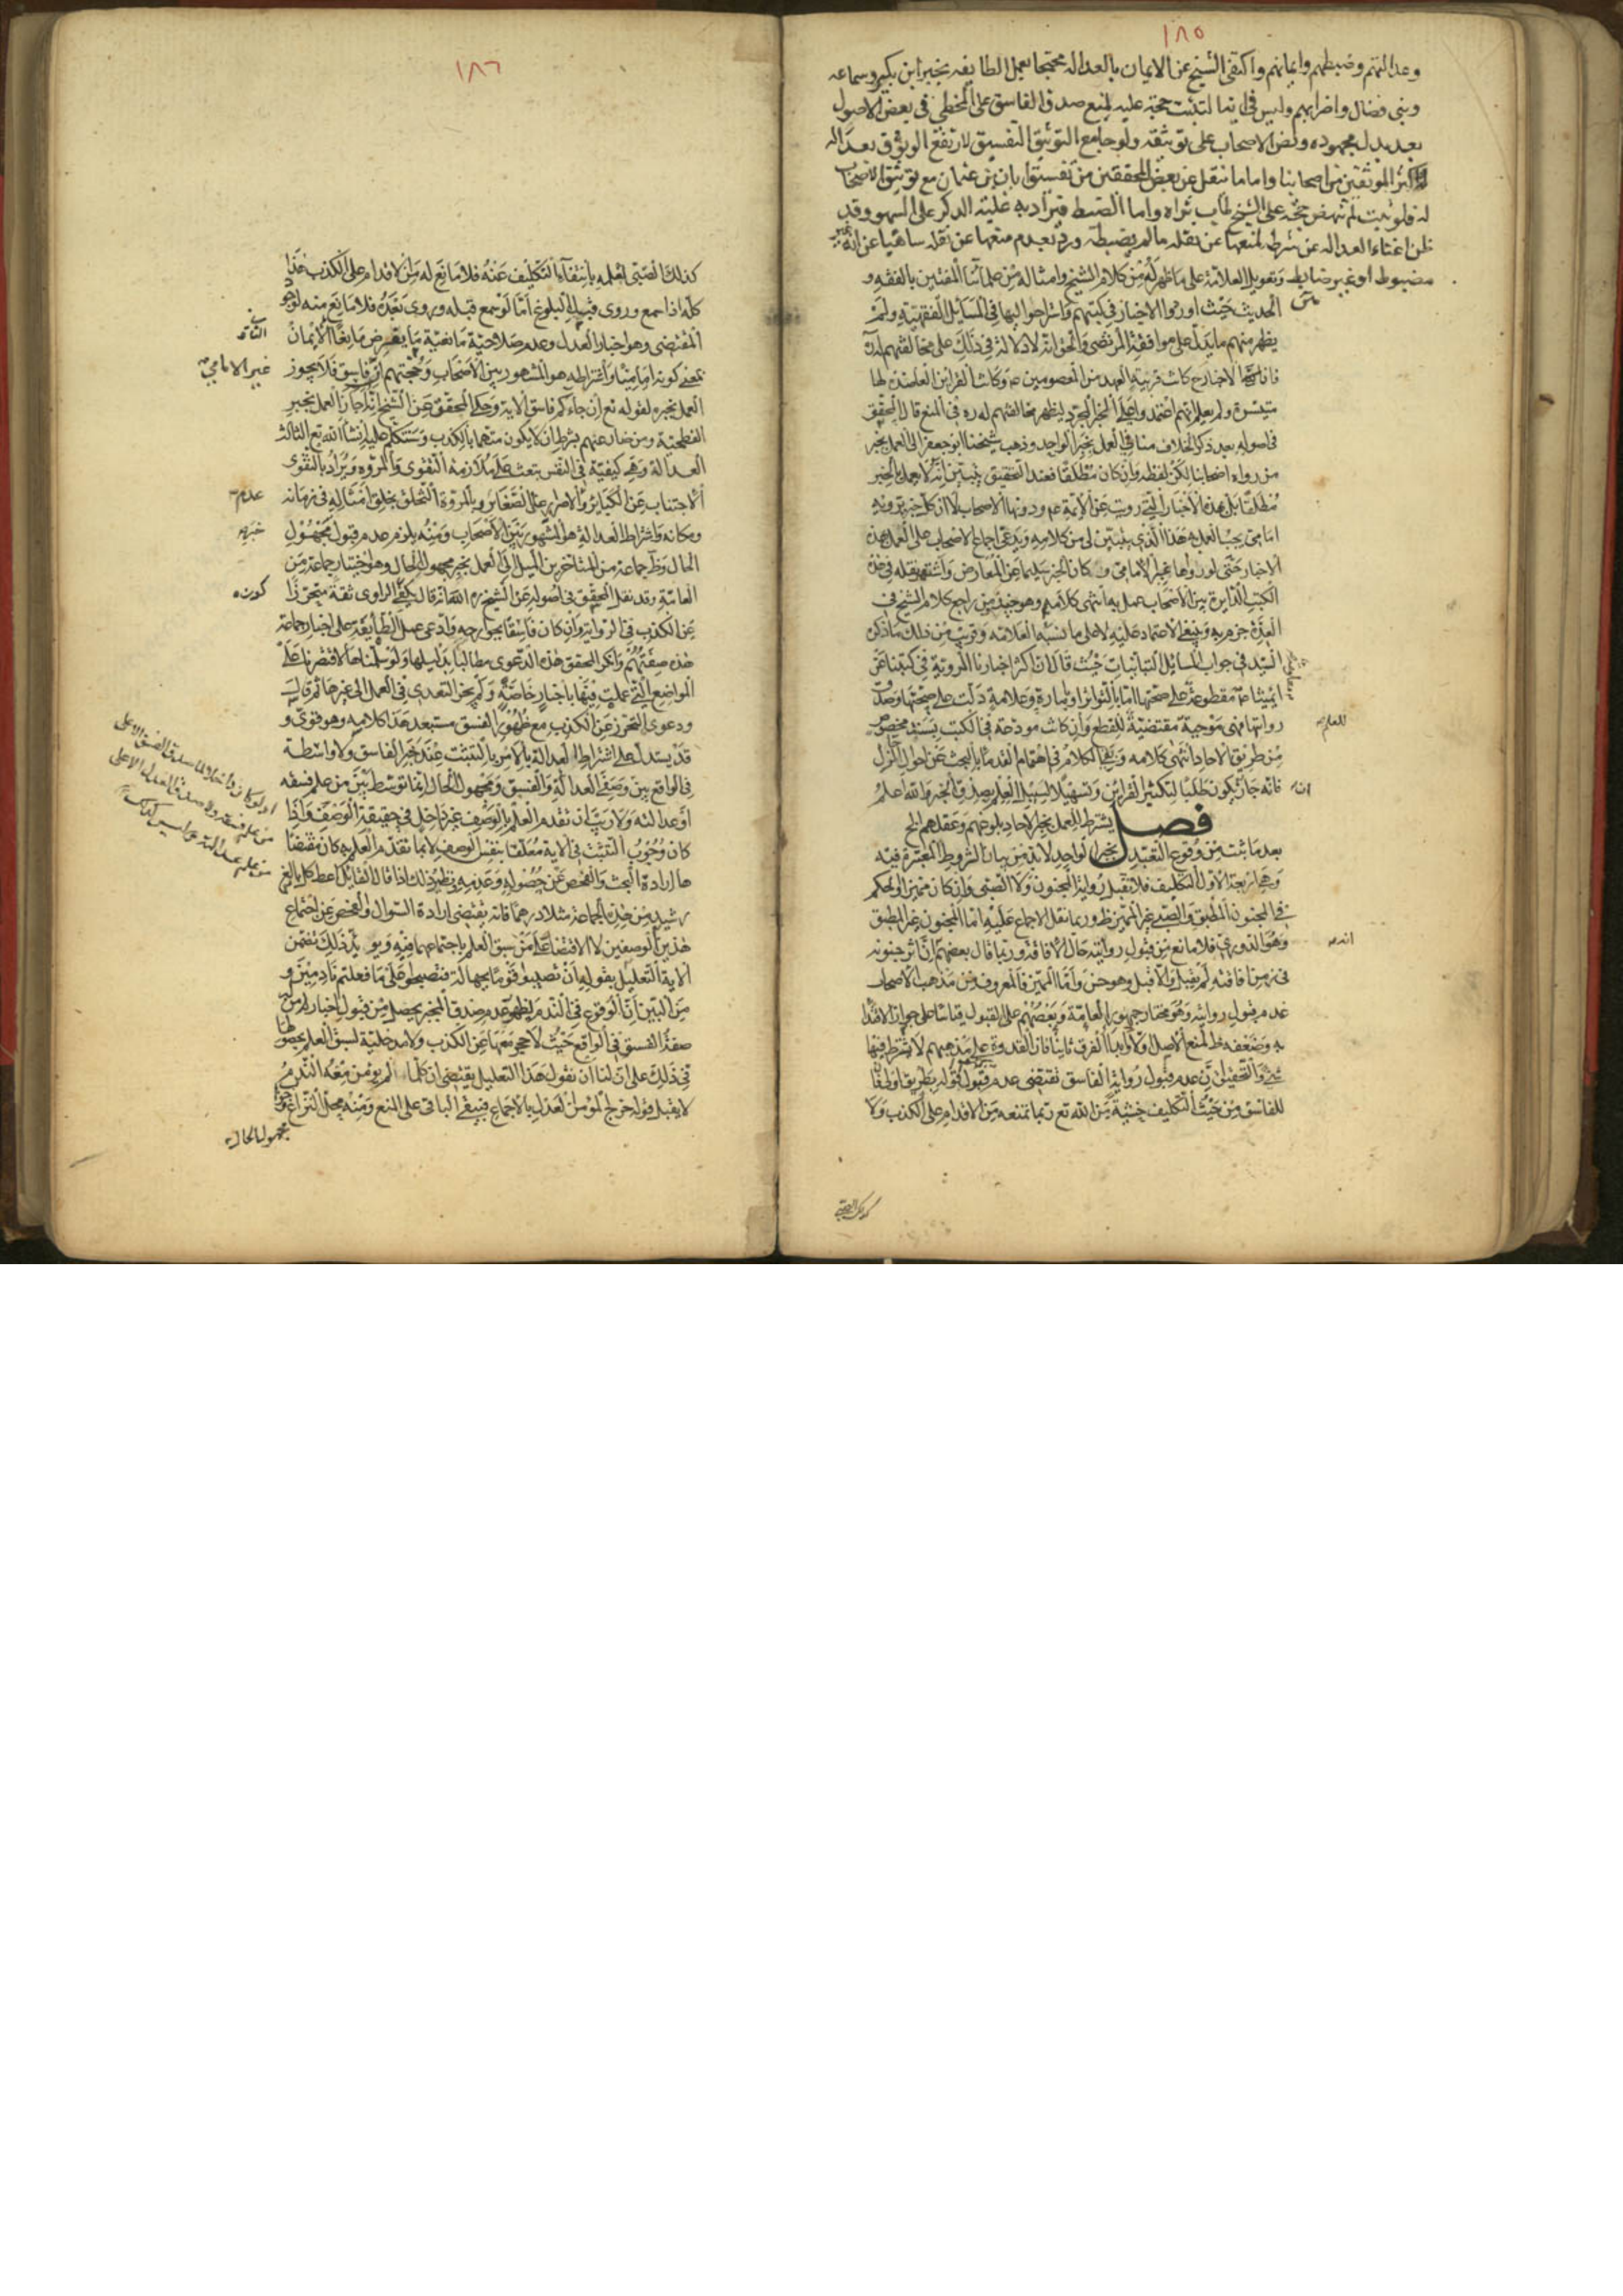 ١٨٥
وعدالتهم وضبطهم وايمانهم واكتفى الشيخ عن الايمان بالعدالة محتجا بعمل الطايفه بخبر ابن بكير وسماعه
وبنى فضال واضرابهم وليس فى اية التثبت حجة عليه لمنع صدق الفاسق على المخطى فى بعض الاصول
بعد بذل مجهوده ونص الاصحاب على توثيقه ولو جامع التوثيق التفسيق لارتفع الوثوق بعدالة
اكثر الموثقين من اصحابنا واما ما ينقل عن بعض المحققين من تفسيق ابان بن عثمان مع توثيق الاصحاب
له فلو ثبت لم تنهض حجة على الشيخ طاب ثراه واما الضبط فيراد به غلبة الذكر على السهو وقد
ظن اغناء العدالة عن شرطه لمنعها عن نقله ما لم يضبطه ورد بعدم منعها عن نقله ساهيا عن انه غير
مضبوط او غير ضابط وتعويل العلامة على ما ظهر له من كلام الشيخ وامثاله من علمائنا المعتنين بالفقه و
الحديث حيث اوردوا الاخبار فى كتبهم واستراحوا اليها فى المسايل الفقهية ولم
يظهر منهم ما يدل على موافقة المرتضى والحق انه لا دلالة فى ذلك على مخالفتهم له
فان الاخبار ح كانت قريبة العهد من المعصومين ع وكانت القراين العاضدة لها
متيسرة ولم يعلم انهم اعتمدوا على الخبر المجرد ليظهر مخالفتهم له ره فى المنع قال المحقق
فى اصوله بعد ذكر الخلاف منا فى العمل بخبر الواحد وذهب شيخنا ابو جعفر الى العمل بخبر
من رواه اصحابنا لكن لفظه وان كان مطلقا فعند التحقيق يتبين انه لا يعمل بالخبر
مطلقا بل بهذه الاخبار التى رويت عن الائمة ع ودونها الاصحاب لا ان كل خبر يرويه
امامى يجب العمل به هذا الذى تبين لى من كلامه ويدعى اجماع الاصحاب على العمل بهذه
الاخبار حتى لو رواها غير الامامى وكان الخبر سليما عن المعارض واشتهر نقله فى هذه
الكتب الدايرة بين الاصحاب عمل به انتهى كلامه وهو جيد من راجع كلام الشيخ فى
العدة جزم به وينبغى الاعتماد عليه لا على ما نسبه العلامة وقريب من ذلك ما ذكره
السيد فى جواب المسائل التبانيات حيث قال ان اكثر اخبارنا المروية فى كتبنا عن
ائمتنا ع مقطوعة على صحتها اما بالتواتر او بامارة وعلامة دلت على صحتها وصدق
رواتها فهى موجبة مقتضية للقطع وان كانت مودعة فى الكتب بسند مخصوص
للعلم
من طريق الاحاد انتهى كلامه وبقى الكلام فى اهتمام القدماء بالبحث عن احوال الرجال
فانه جاز يكون طلبا لتكثير القراين وتسهيلا لسبيل العلم بصدق الخبر والله اعلم
ان
فصل يشترط للعمل بخبر الاحاد بلوغهم وعقلهم الخ
بعد ما ثبت من وقوع التعبد بخبر الواحد لا بد من بيان الشروط المعتبرة فيه
وهى اربعة الاول التكليف فلا تقبل رواية المجنون ولا الصبى وان كان مميزا والحكم
فى المجنون المطبق والصبى غير المميز ظ وربما نقل الاجماع عليه اما المجنون غير المطبق
وهو الدورى فلا مانع من قبول روايته حال الافاقة وربما قال بعضهم ان اثر جنونه
فى زمن افاقته لم يقبل والا قبل وهو حسن واما المميز فالمعروف من مذهب الاصحاب
عدم قبول روايته وهو مختار جمهور العامة وبعضهم على القبول قياسا على جواز الاقتداء
به وضعفه ظ لمنع الاصل اولا وابداء الفرق ثانيا فان القدوة على مذهبهم لا يشترط فيها
شئ والتحقيق ان عدم قبول رواية الفاسق تقتضى عدم قبوله بطريق اولى فان
للفاسق من حيث التكليف خشية من الله تع ربما تمنعه من الاقدام على الكذب ولا
كذلك الصبى
١٨٦
كذلك الصبى لعلمه بانتفاء التكليف عنه فلا مانع له من الاقدام على الكذب هذا
كله اذا سمع وروى قبل البلوغ اما لو سمع قبله وروى بعده فلا مانع منه لوجود
المقتضى وهو اخبار العدل وعدم صلاحية مانعية ما يفرض مانعا الايمان
الثانى
بمعنى كونه اماميا واشتراطه هو المشهور بين الاصحاب وحجتهم ان فاسق فلا يجوز
غير الامامى
العمل بخبره لقوله تع ان جاءكم فاسق الاية وحكى المحقق عن الشيخ انه اجاز العمل بخبر
الفطحية ومن ضارعهم بشرط ان لا يكون متهما بالكذب وسنتكلم عليه انشاء الله تع الثالث
العدالة وهى كيفية فى النفس تبعث على ملازمة التقوى والمروة ويراد بالتقوى
الاجتناب عن الكباير والاصرار على الصغاير وبالمروة التخلق بخلق امثاله فى زمانه
ومكانه واشتراط العدالة هو المشهور بين الاصحاب ومنه يلزم عدم قبول مجهول
عدم
خبره
الحال وظ جماعة من المتاخرين الميل الى العمل بخبر مجهول الحال وهو اختيار جماعة من
العامة وقد نقل المحقق فى اصوله عن الشيخ ره انه قال يكفى الراوى ثقة متحرزا
كونه
عن الكذب فى الرواية وان كان فاسقا بجوارحه وادعى عمل الطايفة على اخبار جماعة
هذه صفتهم وانكر المحقق هذه الدعوى مطالبا بدليلها ولو سلمناها لاقتصرنا على
المواضع التى عملت فيها باخبار خاصة ولم يجز التعدى فى العمل الى غيرها ثم قال
ودعوى التحرز عن الكذب مع ظهور الفسق مستبعد هذا كلامه وهو قوى و
قد يستدل على اشتراط العدالة بالامر بالتثبت عند خبر الفاسق ولا واسطة
فى الواقع بين وصفى العدالة والفسق ومجهول الحال انما توسط بين من علم فسقه
او عدالته ولا ريب ان تقدم العلم بالوصف غير داخل فى حقيقة الوصف واذا
كان وجوب التثبت فى الاية معلقا بنفس الوصف لا بما تقدم العلم به كان مقتضا
ها ارادة البحث والفحص عن حصوله وعدمه ونظير ذلك اذا قال القائل اعط كل بالغ
رشيد من هذه الجماعة مثلا درهما فانه يقتضى ارادة السؤال والفحص عن اجتماع
هذين الوصفين لا الاقتصار على من سبق العلم باجتماعهما فيه ويؤيد ذلك تضمن
الاية التعليل بقوله ان تصيبوا قوما بجهالة فتصبحوا على ما فعلتم نادمين و
من البين ان الوقوع فى الندم لظهور عدم صدق المخبر يحصل من قبول اخبار له من
صفة الفسق فى الواقع حيث لا حجر معها عن الكذب ولا مدخلية لسبق العلم بحصولها
فى ذلك على ان لنا ان نقول هذا التعليل يقتضى ان كلما لم يؤمن معه الندم
لا يقبل قوله خرج المؤمن العدل بالاجماع فيبقى الباقى على المنع ومنه محل النزاع وهو
مجهول الحال